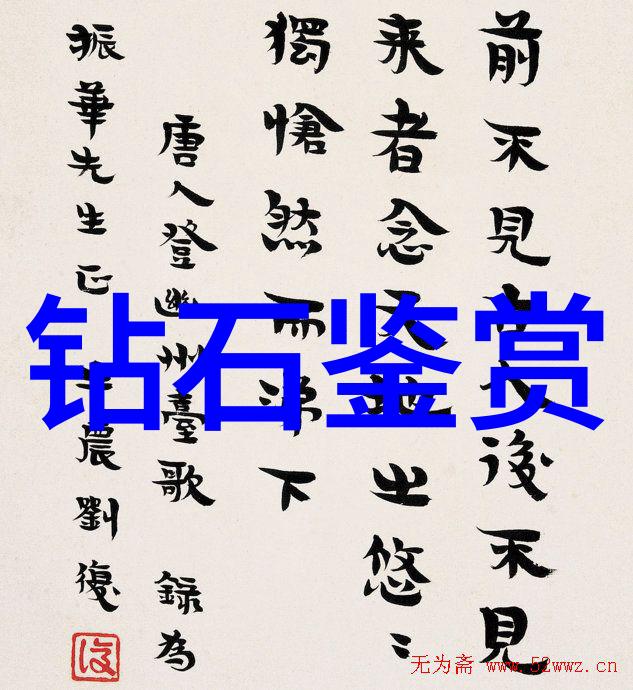 前不見古人後不見
来者念天地之悠〻
獨愴然而涕下
唐人登幽州臺歌 錄為
振華先生正 半農劉復
復
钻石鉴赏
无为斋 www.52wwz.cn